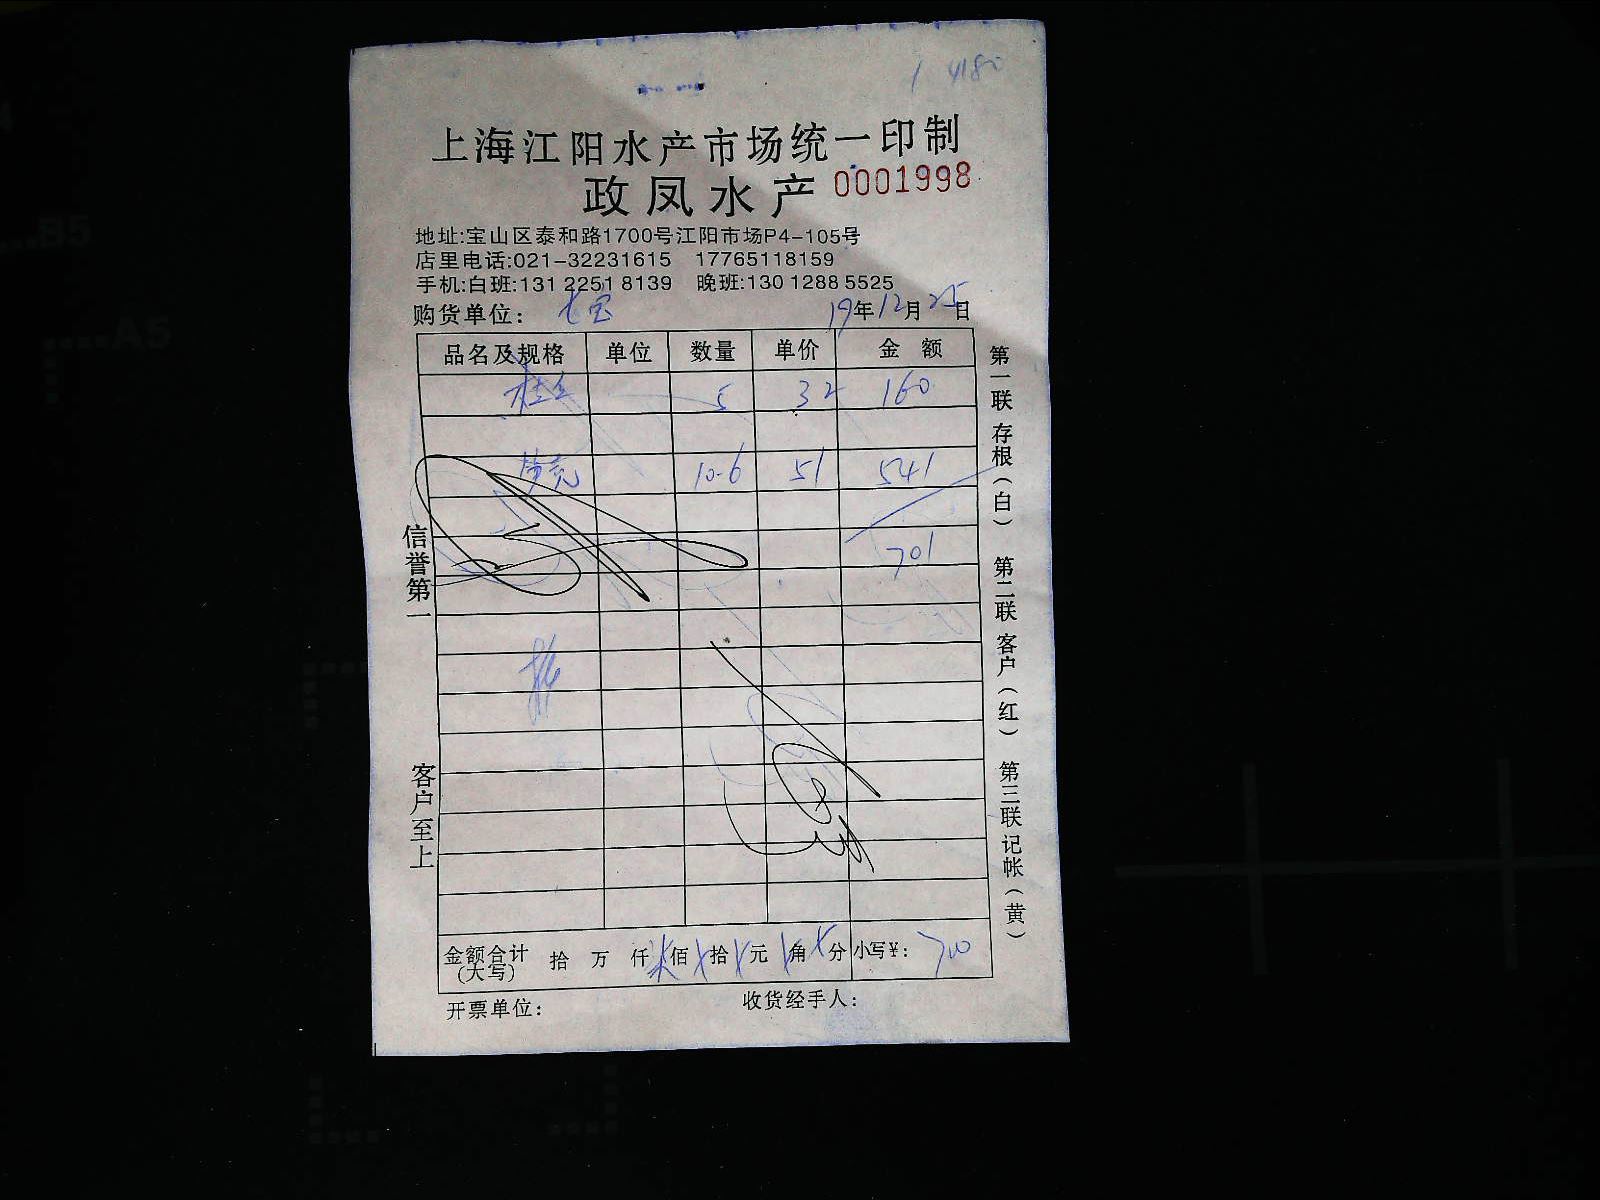 1 4180
上海江阳水产市场统一印制
政凤水产 0001998
地址:宝山区泰和路1700号江阳市场P4-105号
店里电话:021-32231615 17765118159
手机:白班:131 2251 8139 晚班:130 1288 5525
购货单位: 七宝 19年12月25日
品名及规格 单位 数量 单价 金额
桂鱼 5 32 160
10.6 51 541
701
信誉第一
客户至上
第一联存根(白) 第二联客户(红) 第三联记帐(黄)
金额合计(大写) 拾 万 仟 柒佰 拾 元 角 分 小写¥: 700
开票单位: 收货经手人: